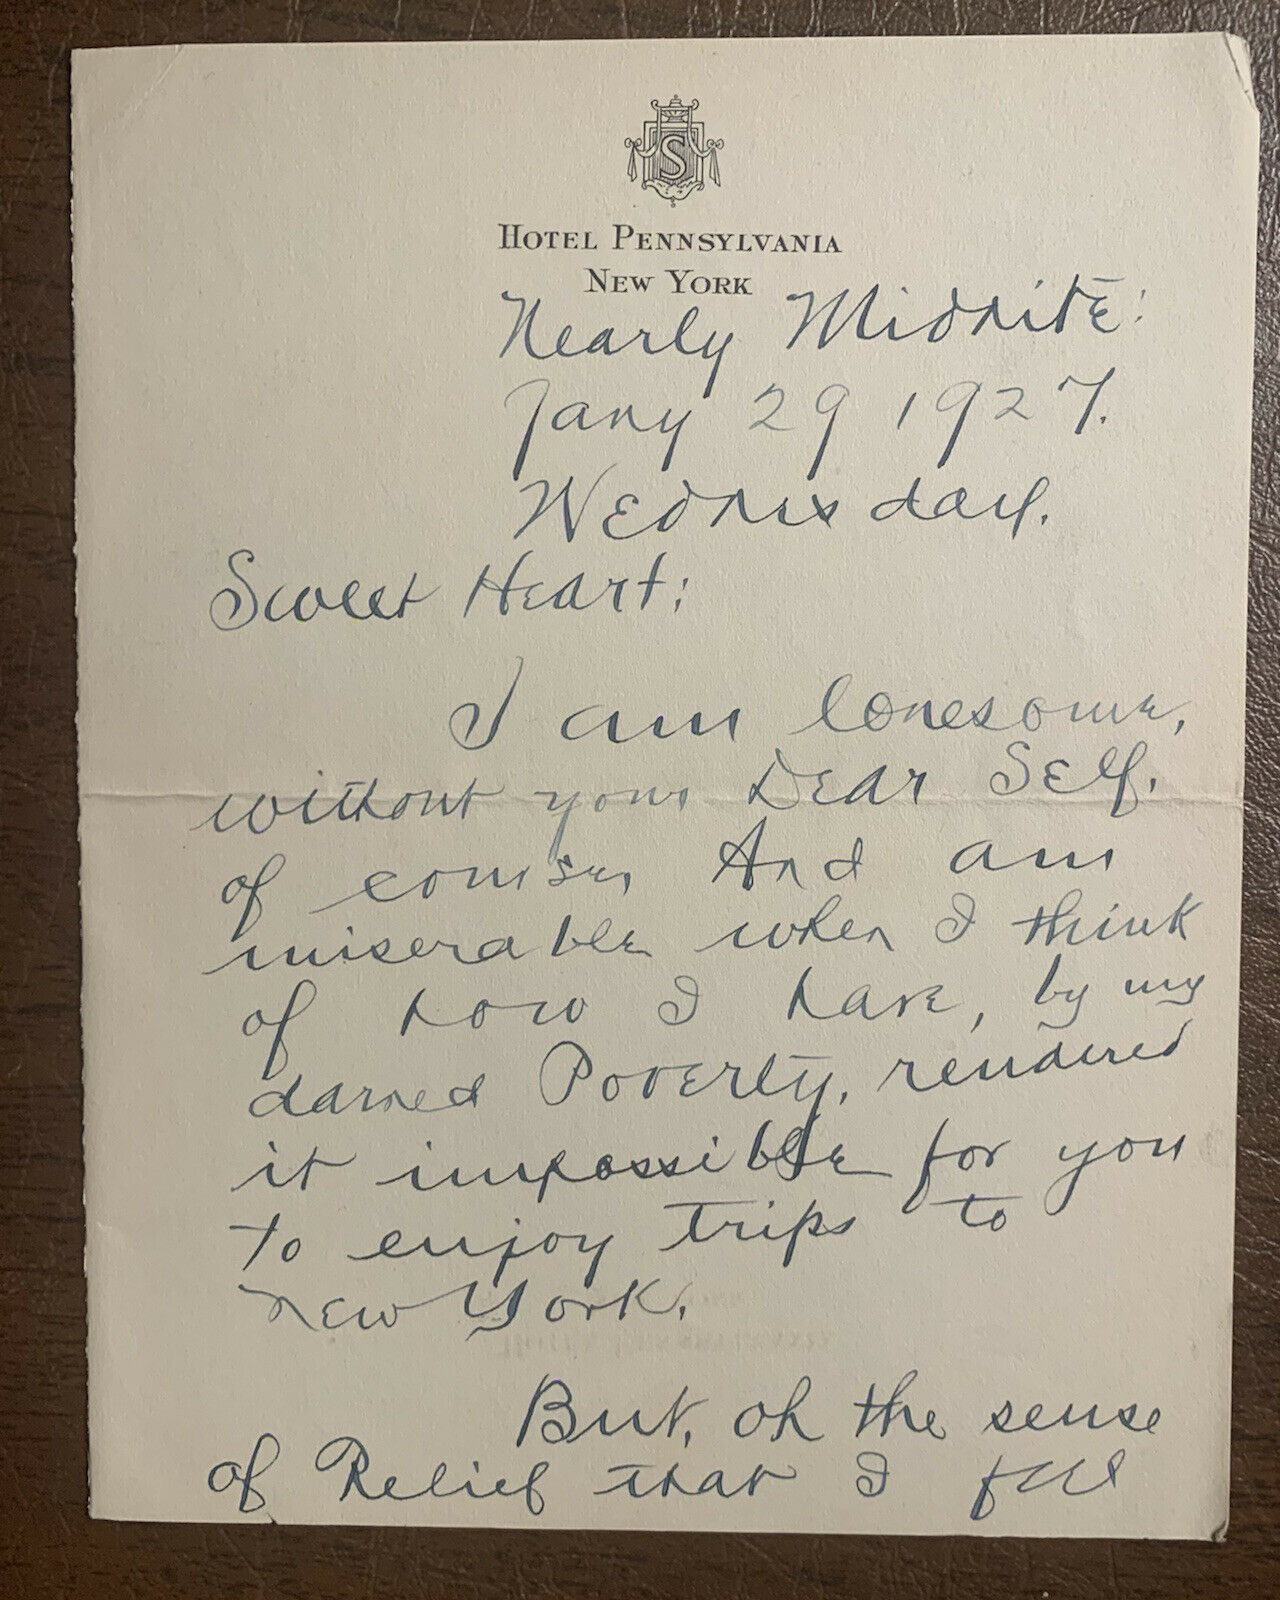 S
HOTEL PENNSYLVANIA
NEW YORK
Nearly Midnite:
Jany 29 1927.
Wednesday.
Sweet Heart:
I am lonesome,
without your Dear Self.
of course, And am
miserable when I think
of how I have, by my
darned Poverty, rendered
it impossible for you
to enjoy trips to
New York.
But, oh the sense
of Relief that I feel